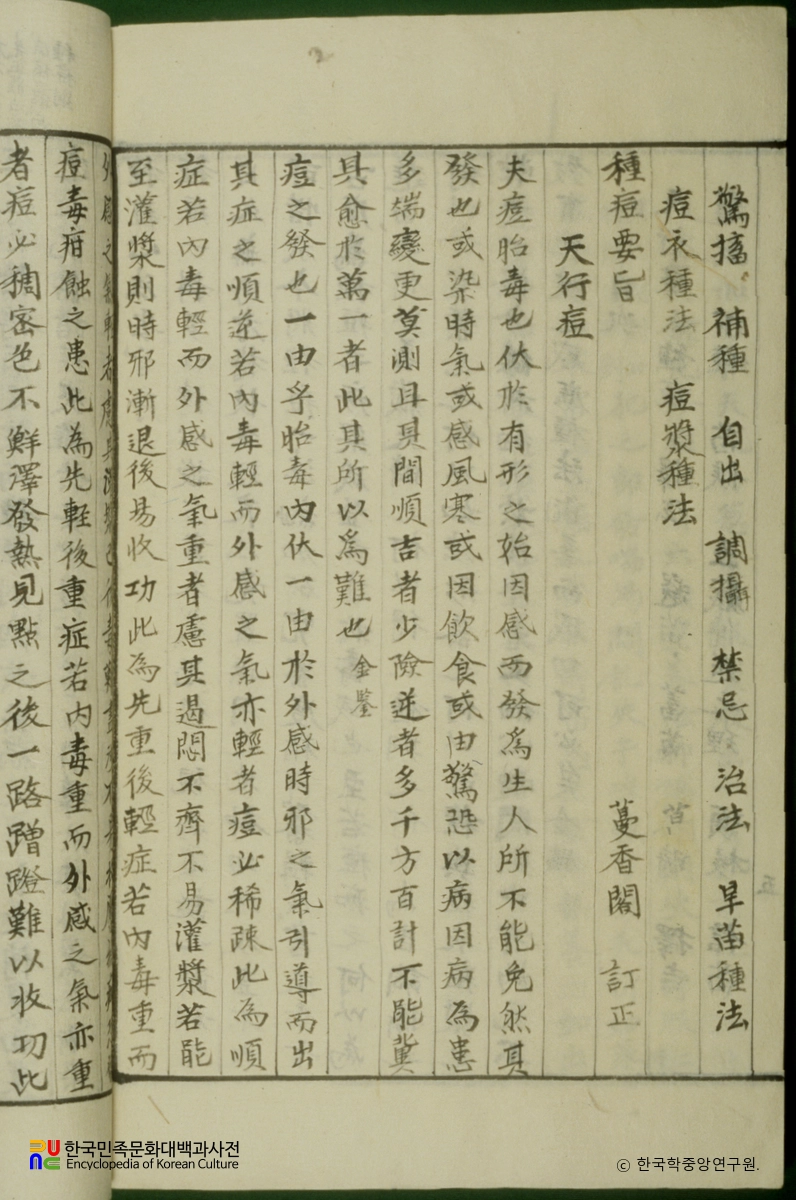 驚搐 補種 自出 調攝 禁忌 治法 旱苗種法
痘衣種法 痘漿種法
種痘要旨 蔓香閣 訂正
天行痘
夫痘胎毒也伏於有形之始因感而發爲生人所不能免然其
發也或染時氣或感風寒或因飲食或由驚恐以病因病為患
多端變更莫測且其間順吉者少險逆者多千方百計不能冀
具愈於萬一者此其所以爲難也 金鑒
痘之發也一由乎胎毒內伏一由於外感時邪之氣引導而出
其症之順逆若內毒輕而外感之氣亦輕者痘必稀疎此為順
症若內毒輕而外感之氣重者慮其遏悶不齊不易灌漿若能
至灌漿則時邪漸退後易收功此為先重後輕症若內毒重而
痘毒疳蝕之患此為先輕後重症若內毒重而外感之氣亦重
者痘必稠密色不鮮澤發熱見點之後一路蹭蹬難以收功此
五
한국민족문화대백과사전
Encyclopedia of Korean Culture
ⓒ 한국학중앙연구원.